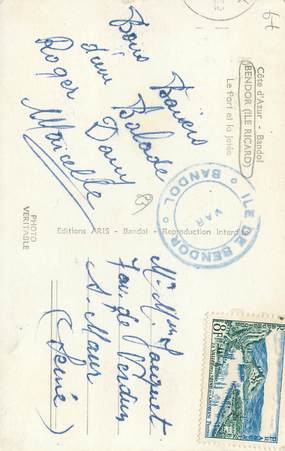 Côte d'Azur - Bandol
BENDOR (ILE RICARD)
Le Port et la jetée
Bons Baisers
d'une Balade
Dany
Roger
Marcelle
PHOTO
VERITABLE
Editions ARIS - Bandol - Reproduction Interdite
ILE DE BENDOR
BANDOL
VAR
Mr Mme Jacquet
de Verdun
St Maur
(Seine)
8F